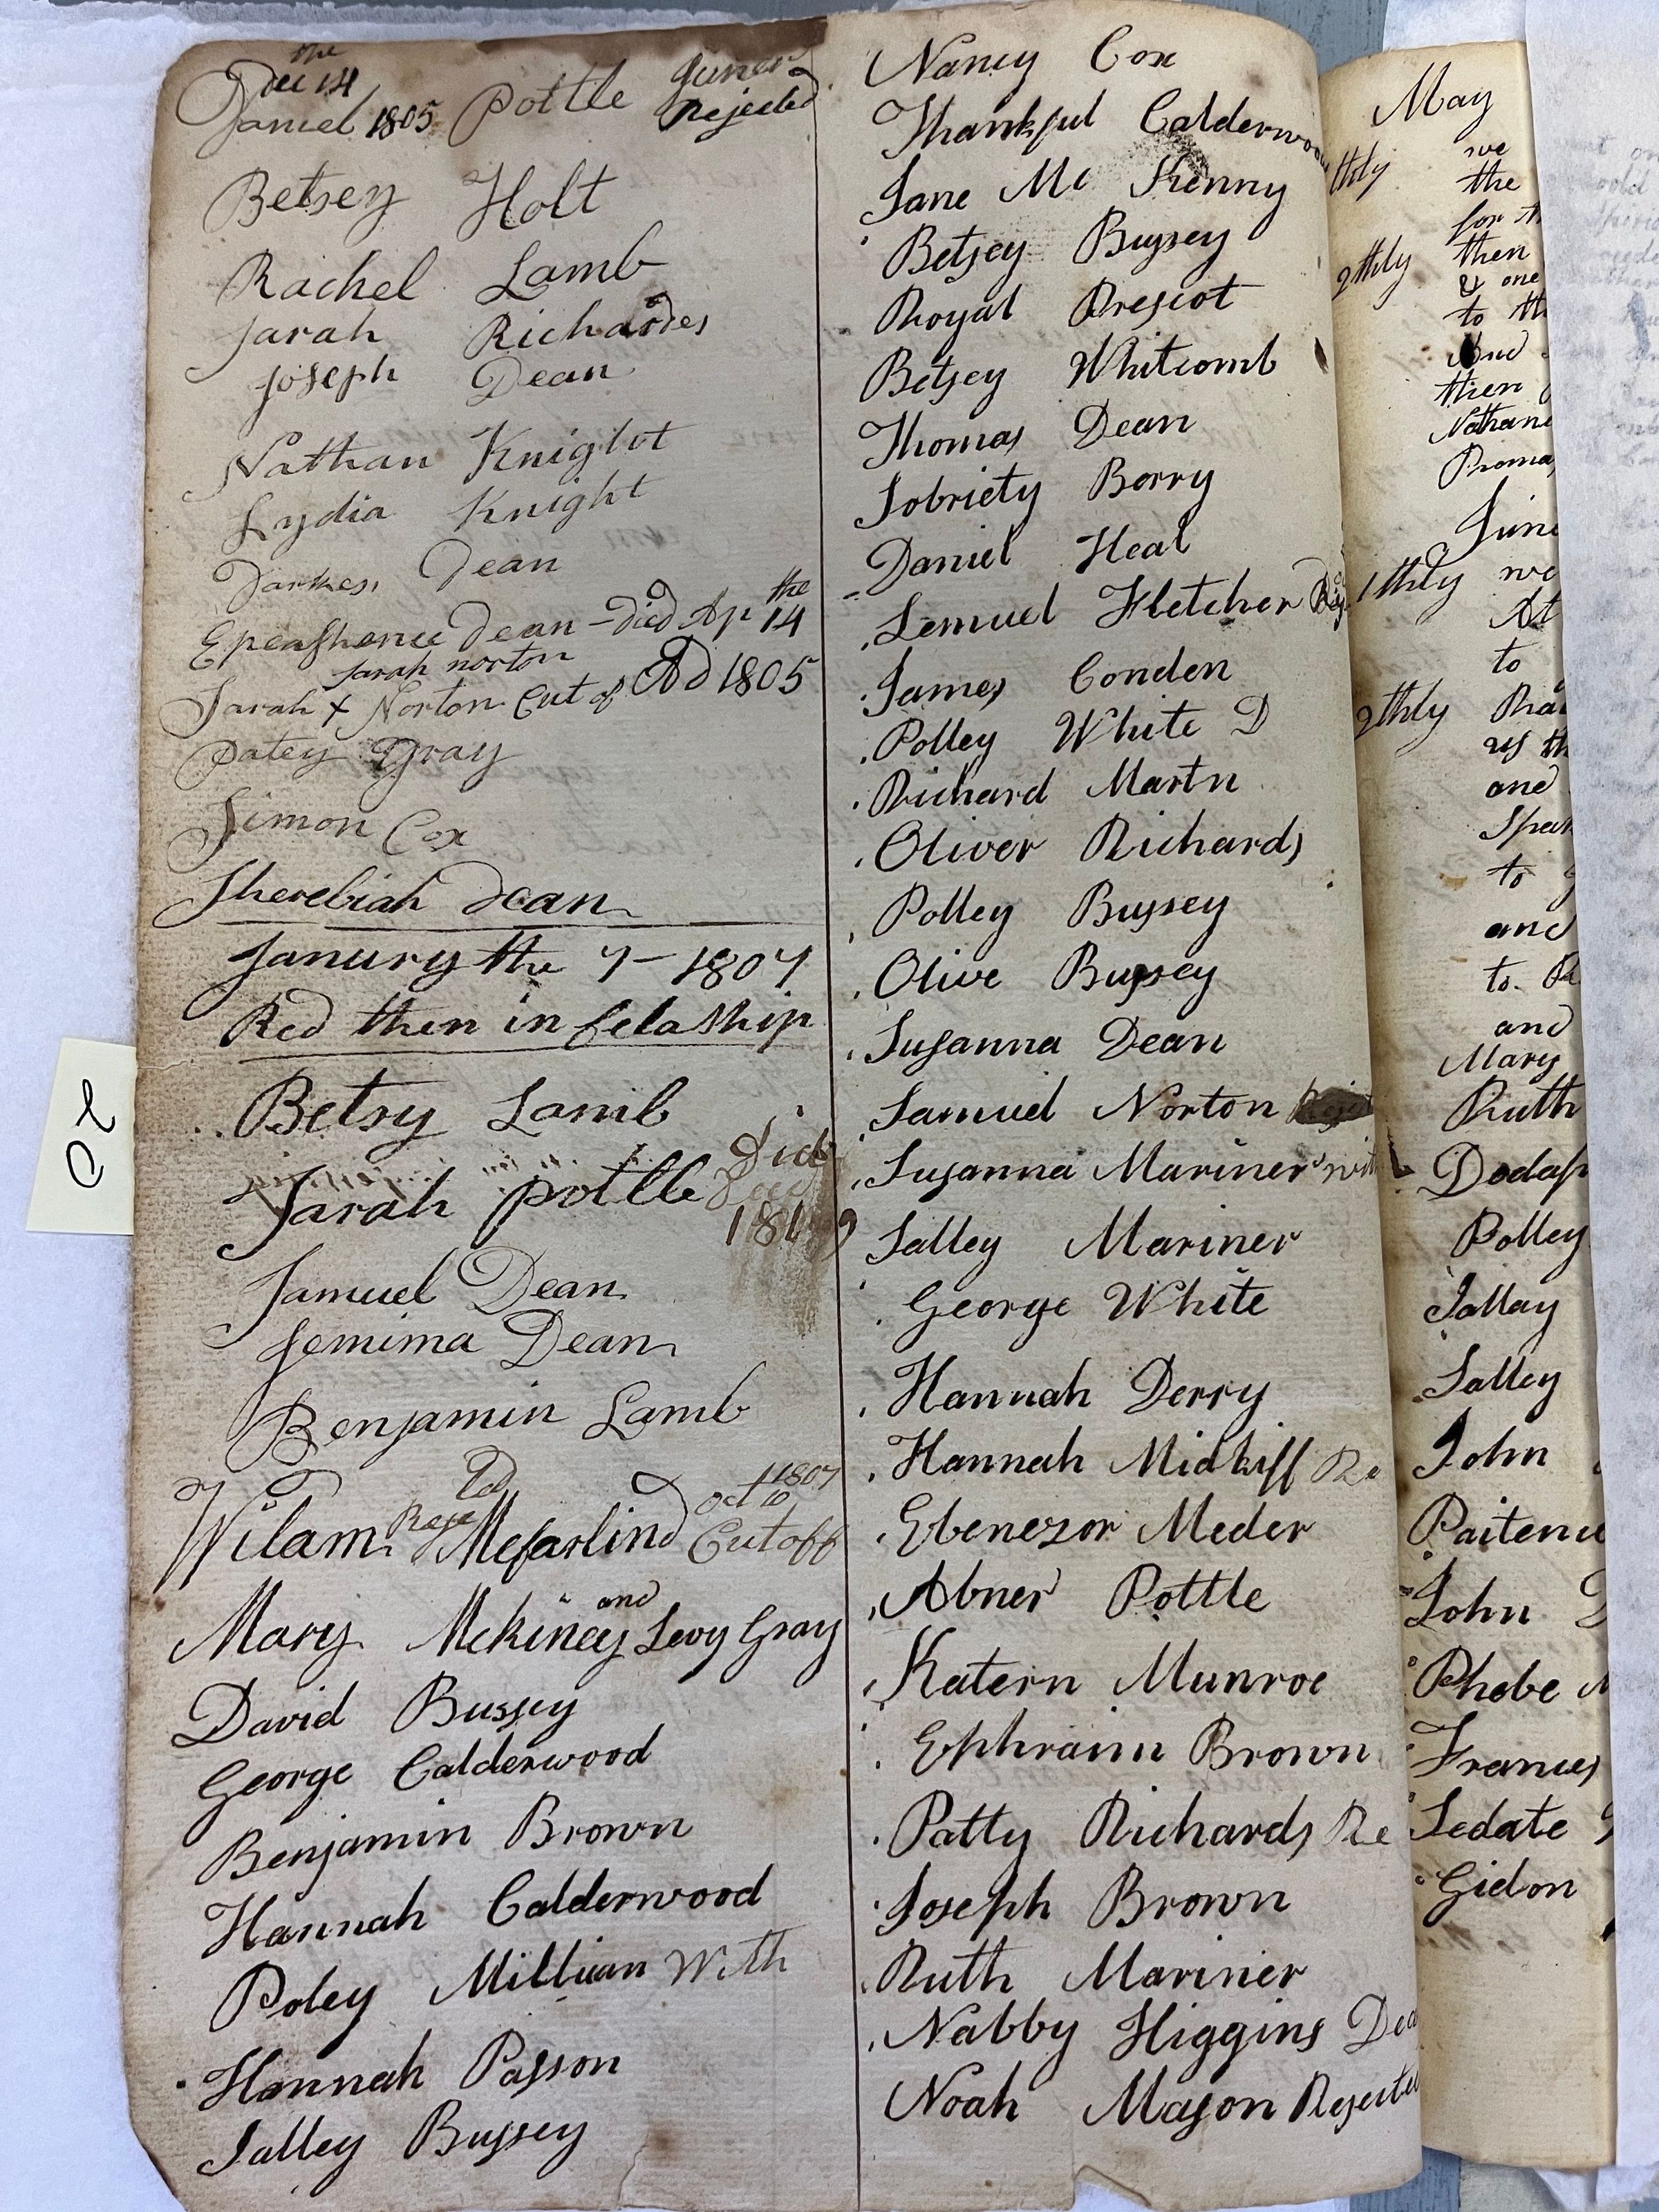 the
Dec 14
Daniel 1805 Pottle Juner
Rejected
Betsey Holt
Rachel Lamb
Sarah Richardes
Joseph Dean
Nathan Knight
Lydia Knight
Darkes Dean
Epeaphenee Dean - Died Ap the 14
Sarah norton
Sarah x Norton Cut of AD 1805
Patey Gray
Simon Cox
Sherebiah Dean
Janury the 7 - 1807
Red then in felaship
Betsy Lamb
Sarah pottle Died
181
Samuel Dean
Jemima Dean
Benjamin Lamb
Wilam Reje Mcfarlind Oct 10 1807
Cut off
Mary Mckiney and Levy Gray
David Bussey
George Calderwood
Benjamin Brown
Hannah Calderwood
Poley Milliian With
Hannah Passon
Salley Bussey
Nancy Cox
Thankful Calderwood
Jane Mc Kenny
Betsey Bussey
Royal Prescot
Betsey Whitcomb
Thomas Dean
Sobriety Berry
Daniel Heal
Lemuel Fletcher Rej
James Conden
Polley White D
Richard Martn
Oliver Richards
Polley Bussey
Olive Bussey
Susanna Dean
Samuel Norton
Susanna Mariner wit
Salley Mariner
George White
Hannah Derry
Hannah Midkiff Re
Ebenezor Meder
Abner Pottle
Katern Munroe
Ephraim Brown
Patty Richards Re
Joseph Brown
Ruth Mariner
Nabby Higgins Dea
Noah Mason Rejected
May
thly we
the
for th
2thly then
& one
to th
And
then
Nathan
Promas
June
1thly we
At
to
2thly
us th
and
Spea
to
and
to
and
Mary
Ruth
Dodaf
Polley
Sallay
Salley
John
Paitenc
John D
Phebe M
Frances
Sedate
Gidon
20